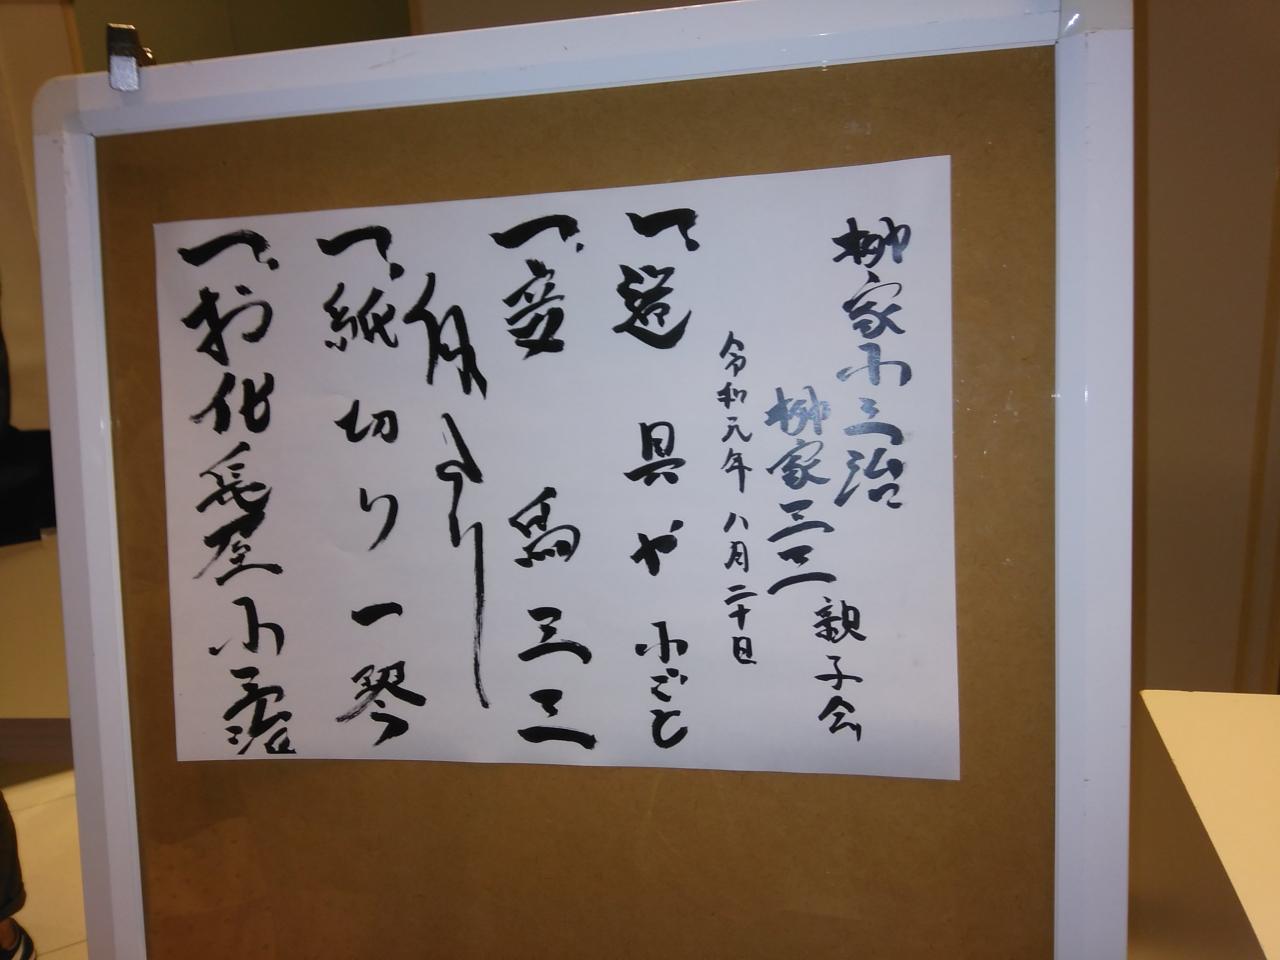 柳家小三治
柳家三三 親子会
令和元年 八月二十日
一、道具や 小ごと
一、妾馬 三三
仲入り
一、紙切り 一琴
一、お化長屋 小三治